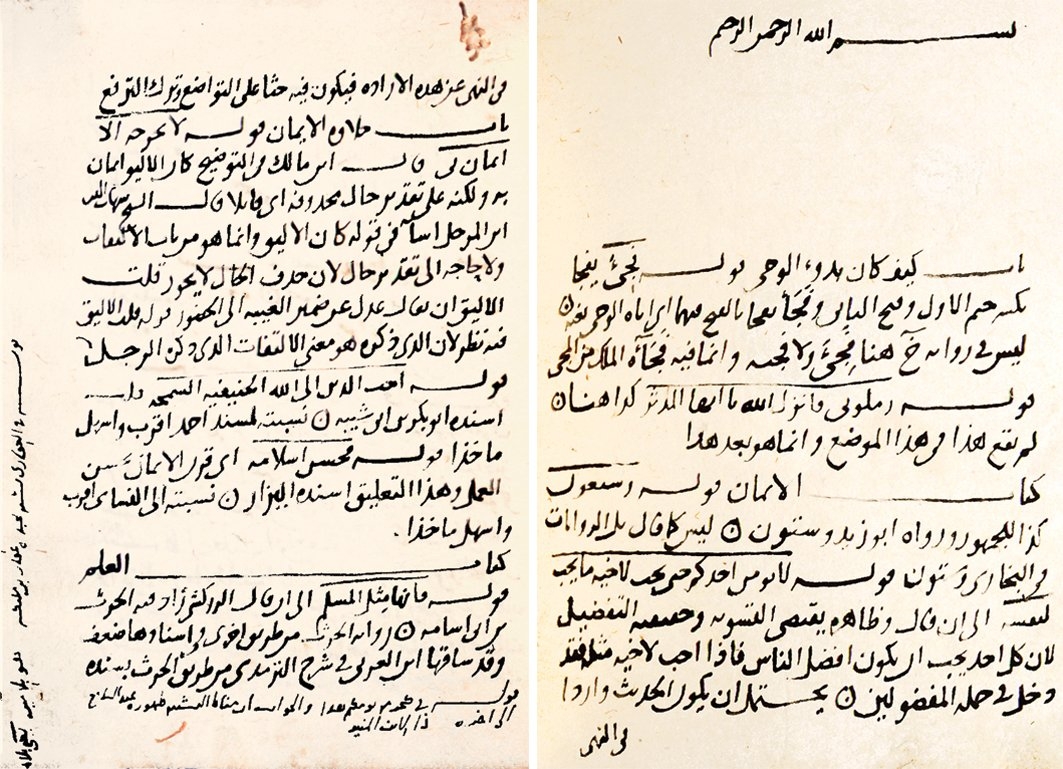 بسم الله الرحمن الرحيم
باب كيف كان بدوء الوحي قوله فجئ يفجأ
بكسر جيم الاول وفتح الثاني وفجأ يفجأ بالفتح فيهما اي اتاه الوحي بغتة
ليس في رواية خ هنا فجئ ولا فجئه وانما فيه فجأه الملك من المجي
قوله زملوني فانزل الله يا ايها المدثر كذا هنا
لم يقع هذا في هذا الموضع وانما هو بعد هذا
كتاب الايمان قوله وسبعون
كذا للجمهور ورواه ابو زيد وستون ليس كما قال بل الروايات
في البخاري وستون قوله لا يومن احدكم حتى يحب لاخيه ما يحب
لنفسه الى ان قال وظاهره يقتضي التسوية وحقيقته التفضيل
لان كل احد يحب ان يكون افضل الناس فاذا احب لاخيه مثله فقد
دخل في جملة المفضولين يحتمل ان يكون الحديث واردا
في النهي
في النهي عن هذه الارادة فيكون فيه حثا على التواضع وترك الترفع
باب حلاوة الايمان قوله لا يخرجه الا
ايمان بي قال ابن مالك في التوضيح كان الاليق ايمان
به ولكنه على تقدير حال محذوفة اي قايلا قال الشيخ شهاب الدين
ابن المرحل اساء في قوله كان الاليق وانما هو من باب الالتفات
ولا حاجة الى تقدير حال لان حذف الحال لا يجوز قلت
الاليق ان يقال عدل عن ضمير الغيبة الى الحضور قوله قلت الاليق
فيه نظر لان الذي ذكره هو معنى الالتفات الذي ذكره ابن المرحل
قوله احب الدين الى الله الحنيفية السمحة
اسنده ابو بكر بن ابي شيبة نسبته لمسند احمد اقرب واسهل
ماخذا قوله فحسن اسلامه اي قرن الايمان بحسن
العمل وهذا التعليق اسنده البزار نسبته الى النساي اقرب
واسهل ماخذا.
كتاب العلم
قوله فانها مثل المسلم الى ان قال الزركشي زاد فيه الحرث
بن ابي اسامة رواية الحرث من طريق اخرى واسنادها ضعف
وقد ساقها ابن العربي في شرح الترمذي من طريق الحرث بسنده
قوله في
الى اخره